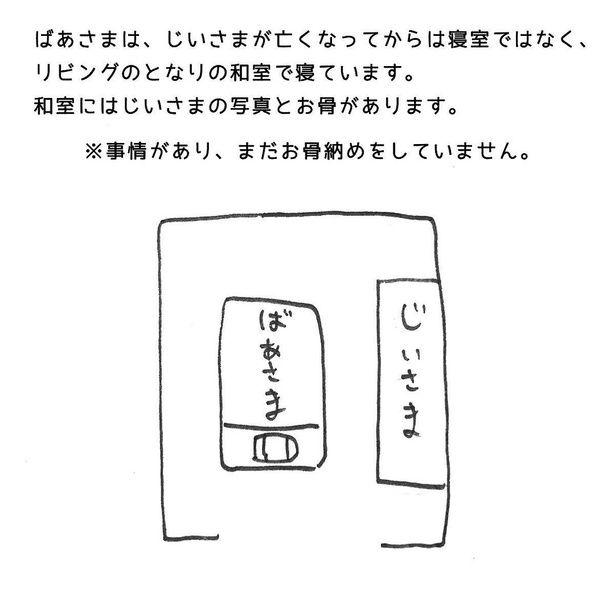 ばあさまは、じいさまが亡くなってからは寝室ではなく、
リビングのとなりの和室で寝ています。
和室にはじいさまの写真とお骨があります。
※事情があり、まだお骨納めをしていません。
ばあさま
じいさま